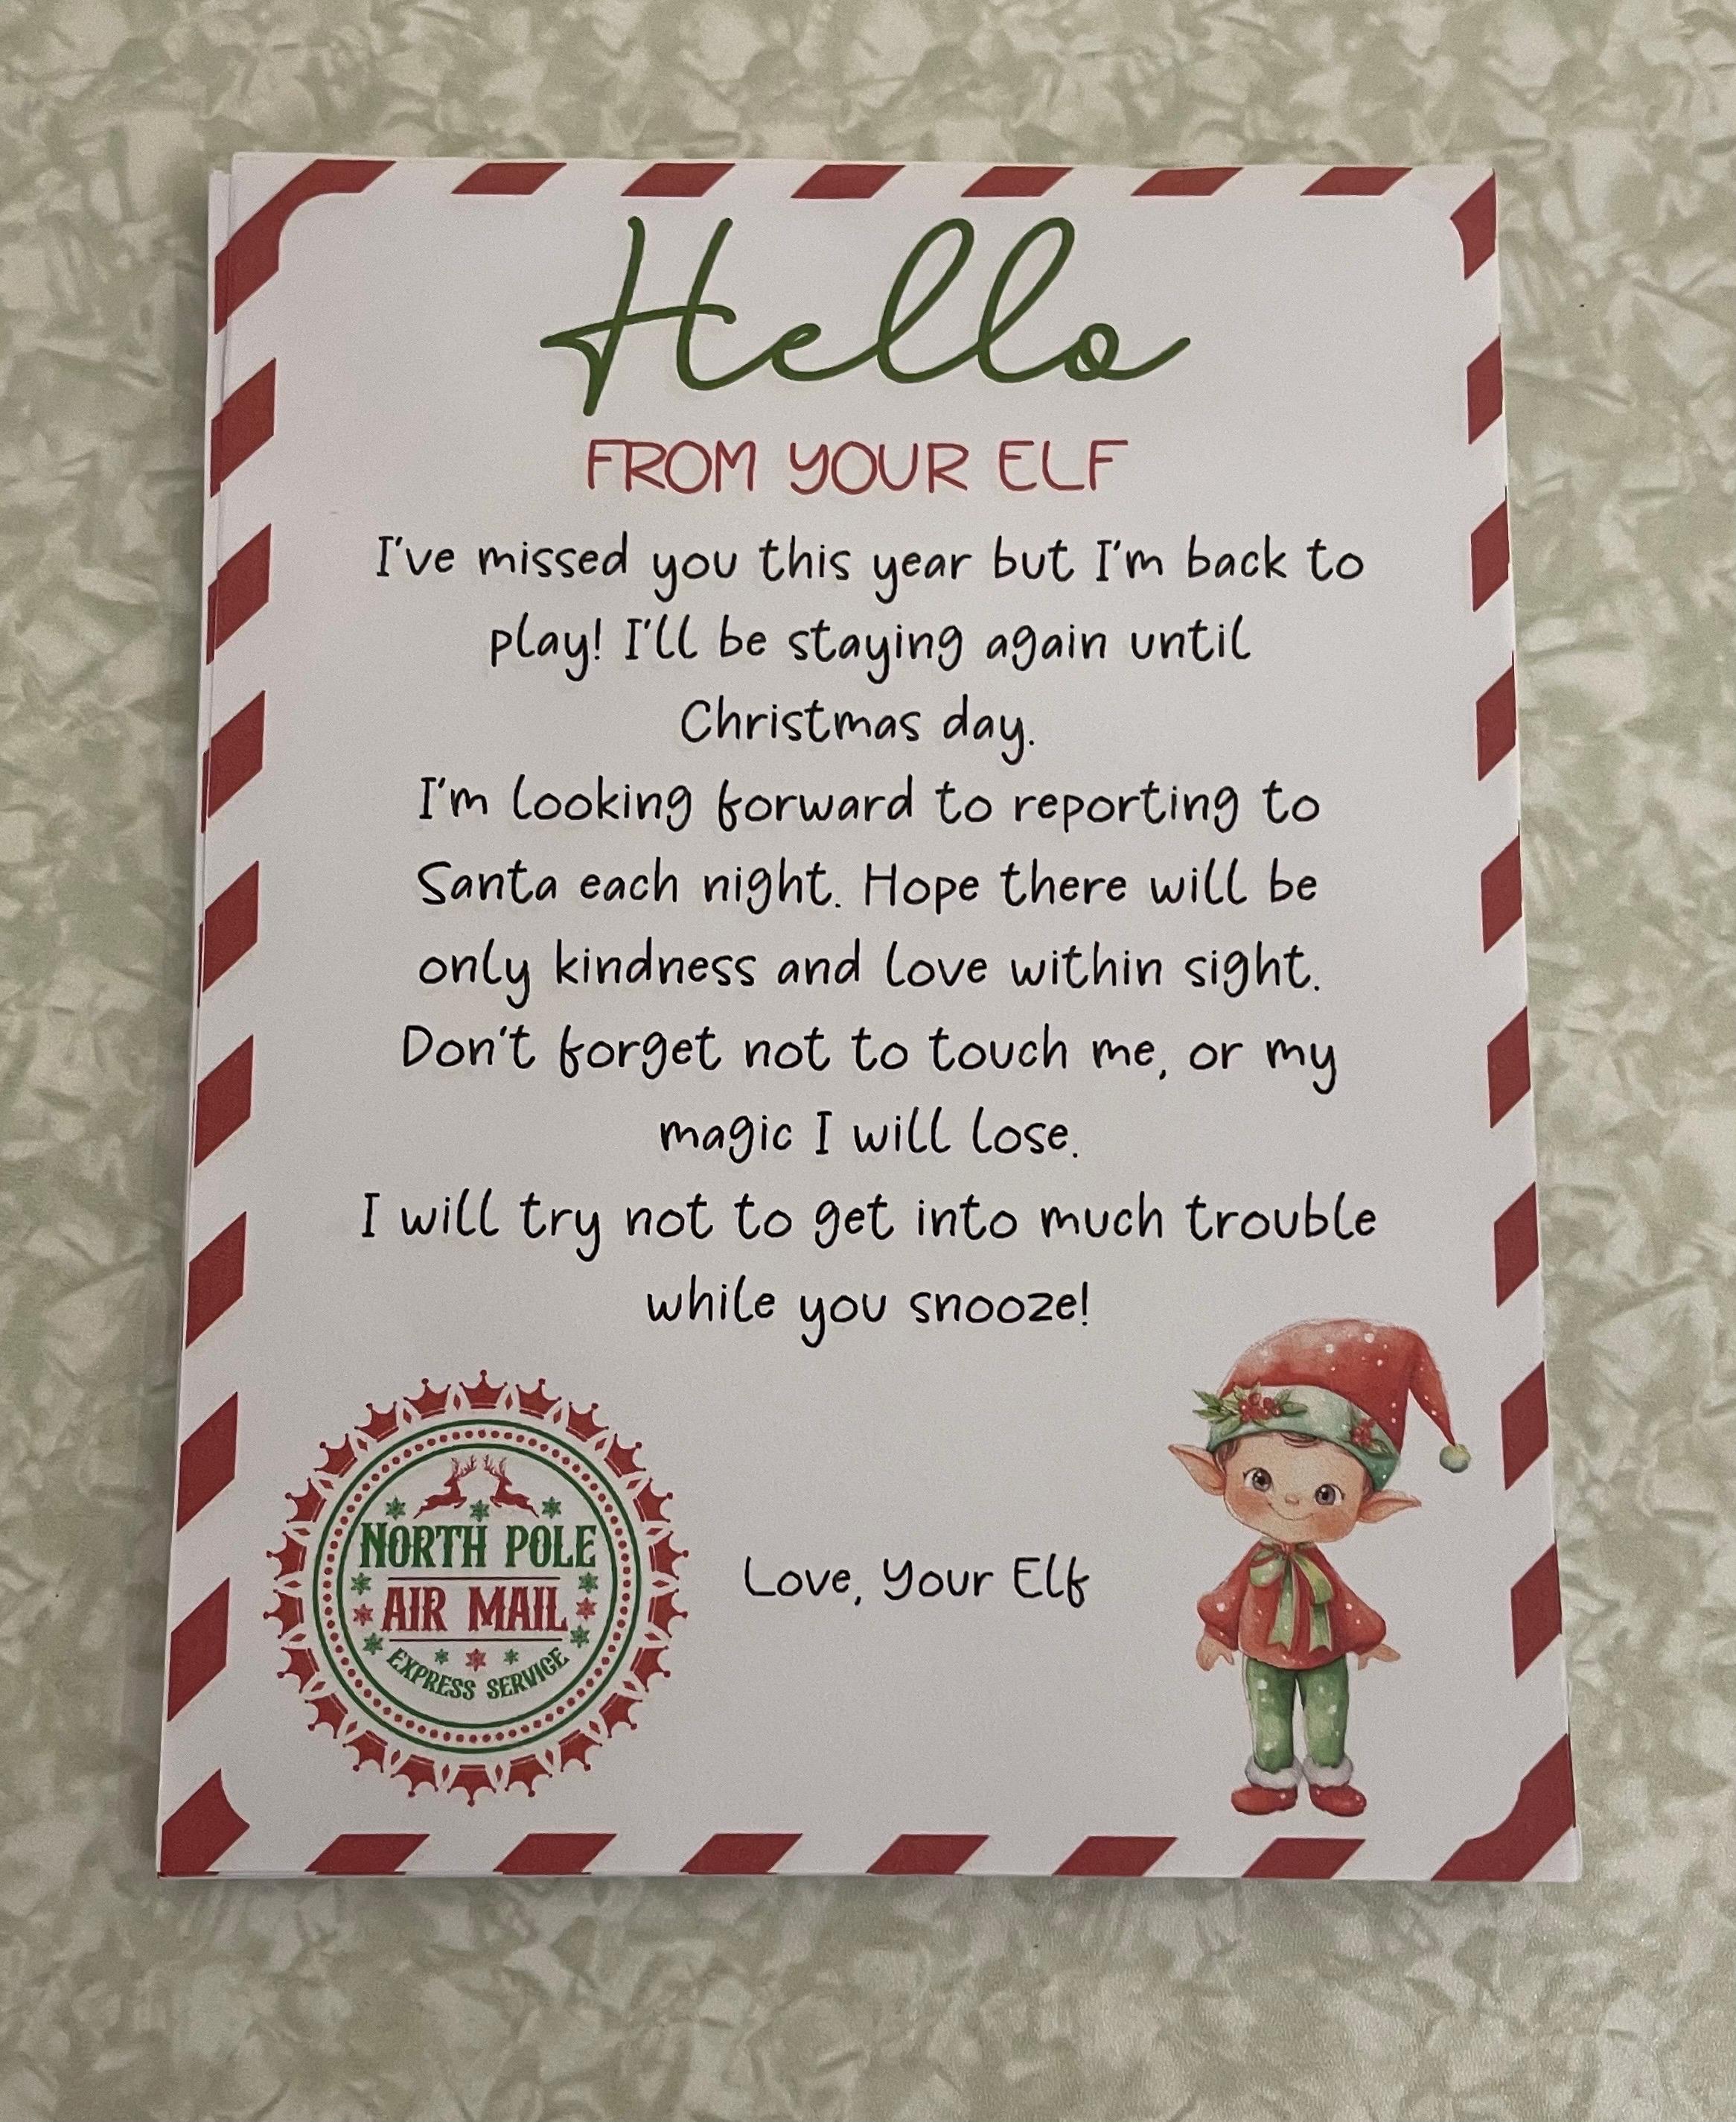 Hello
FROM YOUR ELF
I've missed you this year but I'm back to
play! I'll be staying again until
Christmas day.
I'm looking forward to reporting to
Santa each night. Hope there will be
only kindness and love within sight.
Don't forget not to touch me, or my
magic I will lose.
I will try not to get into much trouble
while you snooze!
NORTH POLE
AIR MAIL
EXPRESS SERVICE
Love, Your Elf